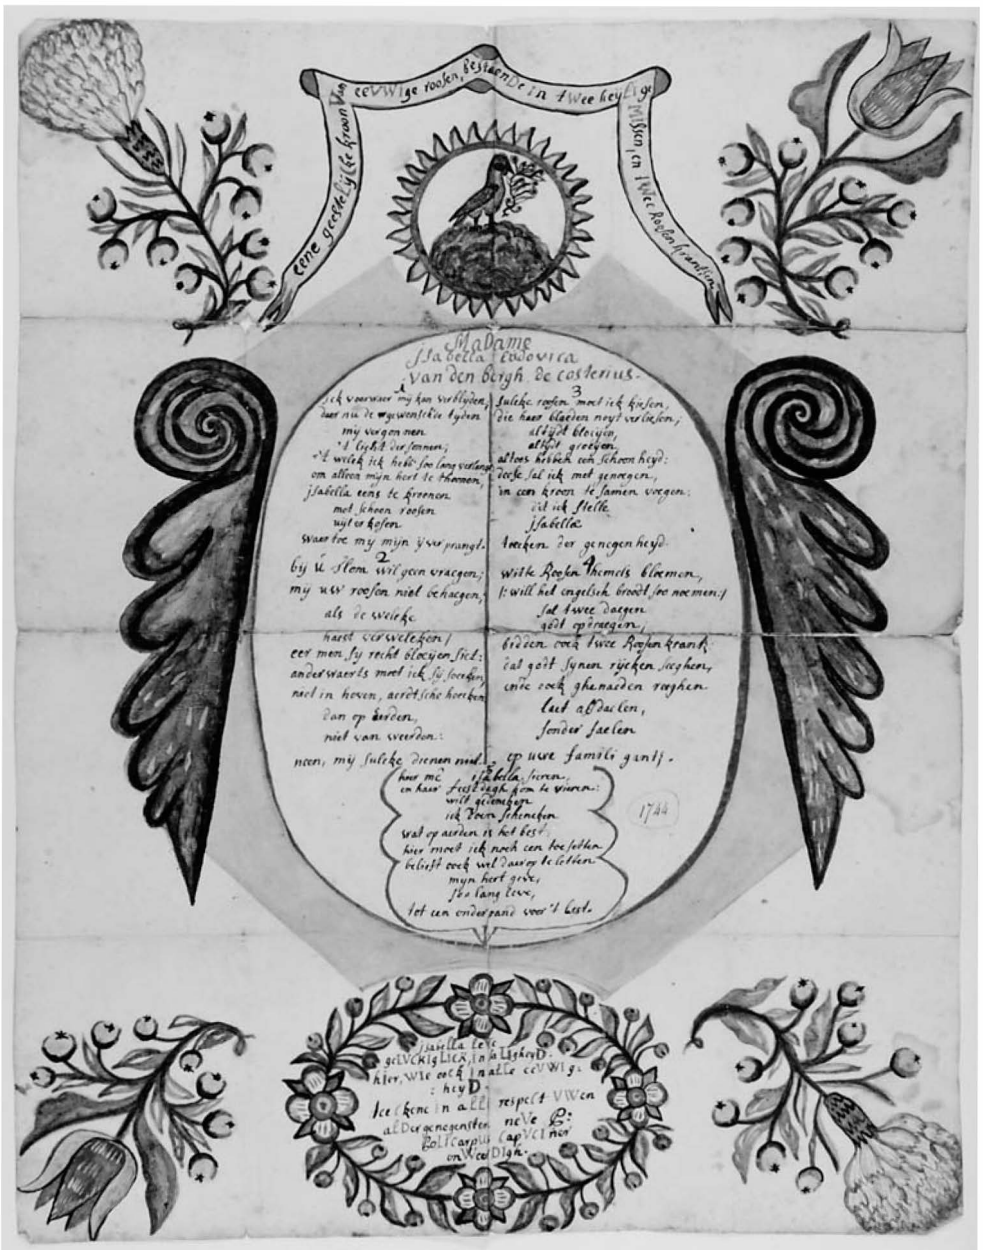 eene geestelijke kroon Van eeVWIge roosen, bestaenDe in tWee heyLIge MIssen, en tWee Roosenkrantsen
MaDame
jsabella Lodovica
van den bergh de costerius.
1
jck voorwaer my kan verblyden,
daer nu de gewenschte tyden
my vergonnen
't licht der sonnen;
't welck ick hebb' soo lang verlangt
om alleen mijn hert te thoonen,
jsabella eens te kroonen
met schoon roosen
uijterkosen
waer toe my mijn ijver prangt.
2
bij u Flora wil geen vraegen;
mij uw roosen niet behaegen,
als de welcke
haest verwelcken /
eer men sy recht bloeijen siet:
anderwaerts moet ick sij soecken,
niet in hoven, aerdtsche hoecken
dan op Erden,
niet van weerden:
neen, mij sulcke dienen niet.
3
sulcke roosen moet ick kiesen,
die haer blaeden noyt verliesen;
altydt bloeijen,
altydt groeyen
altoos hebben een schoonheyd:
deese sal ick met genoegen,
in een kroon te samen voegen:
dit ick stelle
jsabelle
teecken der genegenheyd.
4
witte Roosen hemels bloemen,
/: will het engelsch broodt soo noemen :/
sal twee daegen
godt opdraegen,
bidden oock twee Roosenkrants
dat godt synen rijcken seeghen,
ende oock ghenaeden reeghen
laet afdaelen,
sonder faelen
op uwe famili gants.
5
hier me jsabella sieren,
en haer feestdagh kom te vieren:
wilt gedencken
ick doen schencken
wat op aerden is het best
hier moet ick noch een toesetten
belieft oock wel daer op te letten
mijn hert geve,
soo lang leve,
tot een onderpand voor 't lest.
1744
jsabella leve
geLVCkIgLICk in saLIgheyD.
hIer, WIe oock In aLLe eeVWIg:
: heyD.
teeckene in all respect VWen
aLDergenegensten neVe P:
PoLICarpus CapVCIner
onWeerDIgh.